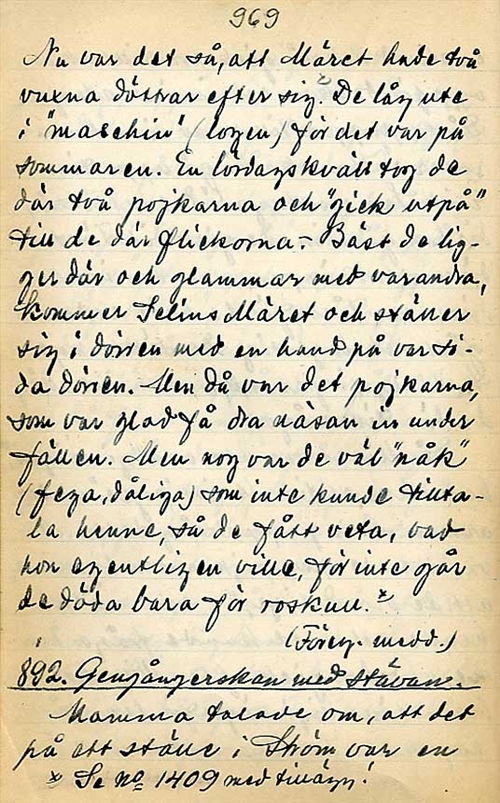 969
Nu var det så, att Märet hade två
vuxna döttrar efter sig. De låg ute
i "maschin" (logen) för det var på
sommaren. En lördagskväll tog de
där två pojkarna och "gick utpå"
till de där flickorna. – Bäst de lig-
ger där och glammar med varandra,
kommer Selins Märet och ställer
sig i dörren med en hand på var si-
da dörren. Men då var det pojkarna,
som var glad få dra näsan in under
fällen. Men nog var de väl "nåk"
(fega, dåliga) som inte kunde tillta-
la henne, så de fått veta, vad
hon egentligen ville, för inte går
de döda bara för roskull.*
(Föreg. medd.)
892. Gengångerskan med stävan.
Mamma talade om, att det
på ett ställe i Ström var en
* Se no 1409 med tillägg!